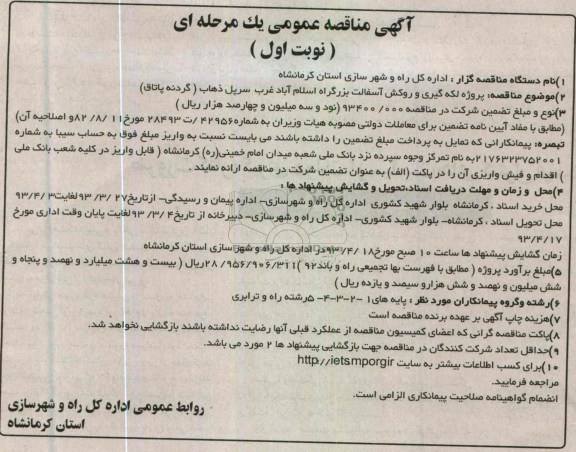 آگهی مناقصه عمومی یك مرحله ای
( نوبت اول )
۱)نام دستگاه مناقصه گزار : اداره کل راه و شهر سازی استان کرمانشاه
۲)موضوع مناقصه: پروژه لکه گیری و روکش آسفالت بزرگراه اسلام آباد غرب سرپل ذهاب ( گردنه پاتاق)
۳)نوع و مبلغ تضمین شرکت در مناقصه ۹۳۴۰۰/۰۰۰ (نود و سه میلیون و چهارصد هزار ریال )
(مطابق با مفاد آیین نامه تضمین برای معاملات دولتی مصوبه هیات وزیران به شماره۴۲۹۵۶ /ت ۲۸۴۹۳ مورخ۱۱ /۸/ ۸۲و اصلاحیه آن)
تبصره: پیمانکارانی که تمایل به پرداخت مبلغ تضمین را داشته باشند می بایست نسبت به واریز مبلغ فوق به حساب سیبا به شماره
۲۱۷۶۳۲۳۷۵۲۰۰۱به نام تمرکز وجوه سپرده نزد بانک ملی شعبه میدان امام خمینی(ره) کرمانشاه ( قابل واریز در کلیه شعب بانک ملی
) اقدام و فیش واریزی آن را در پاکت (الف) به عنوان تضمین شرکت در مناقصه ارائه نمایند .
۴)محل و زمان و مهلت دریافت اسناد،تحویل و گشایش پیشنهاد ها :
محل خرید اسناد ، کرمانشاه بلوار شهید کشوری اداره کل راه و شهرسازی- اداره پیمان و رسیدگی- ازتاریخ۲۷ /۳/ ۹۳لغایت۹۳/۴/۳
محل تحویل اسناد ، کرمانشاه- بلوار شهید کشوری- اداره کل راه و شهرسازی- دبیرخانه از تاریخ۴ /۳/ ۹۳لغایت پایان وقت اداری مورخ
۹۳/۴/۱۷
زمان گشایش پیشنهاد ها ساعت ۱۰ صبح مورخ۱۸ /۹۳/۴در اداره کل راه و شهرسازی استان کرمانشاه
۵)مبلغ برآورد پروژه ( مطابق با فهرست بها تجمیعی راه و باند۹۲ )۲۸/۹۵۶/۹۰۶/۳۱۱ریال ( بیست و هشت میلیارد و نهصد و پنجاه و
شش میلیون و نهصد و شش هزارو سیصد و یازده ریال )
۶)رشته وگروه پیمانکاران مورد نظر : پایه های۱ -۲-۳-۴-۵رشته راه و ترابری
۷)هزینه چاپ آگهی بر عهده برنده مناقصه است
۸)پاکت مناقصه گرانی که اعضای کمیسیون مناقصه از عملکرد قبلی آنها رضایت نداشته باشند بازگشایی نخواهد شد.
۹)حداقل تعداد شرکت کنندگان در مناقصه جهت بازگشایی پیشنهاد ها ۲ مورد می باشد.
۱۰)برای کسب اطلاعات بیشتر به سایت http://iets.mporg.ir
مراجعه فرمایید.
انضمام گواهینامه صلاحیت پیمانکاری الزامی است.
روابط عمومی اداره کل راه و شهرسازی
استان کرمانشاه